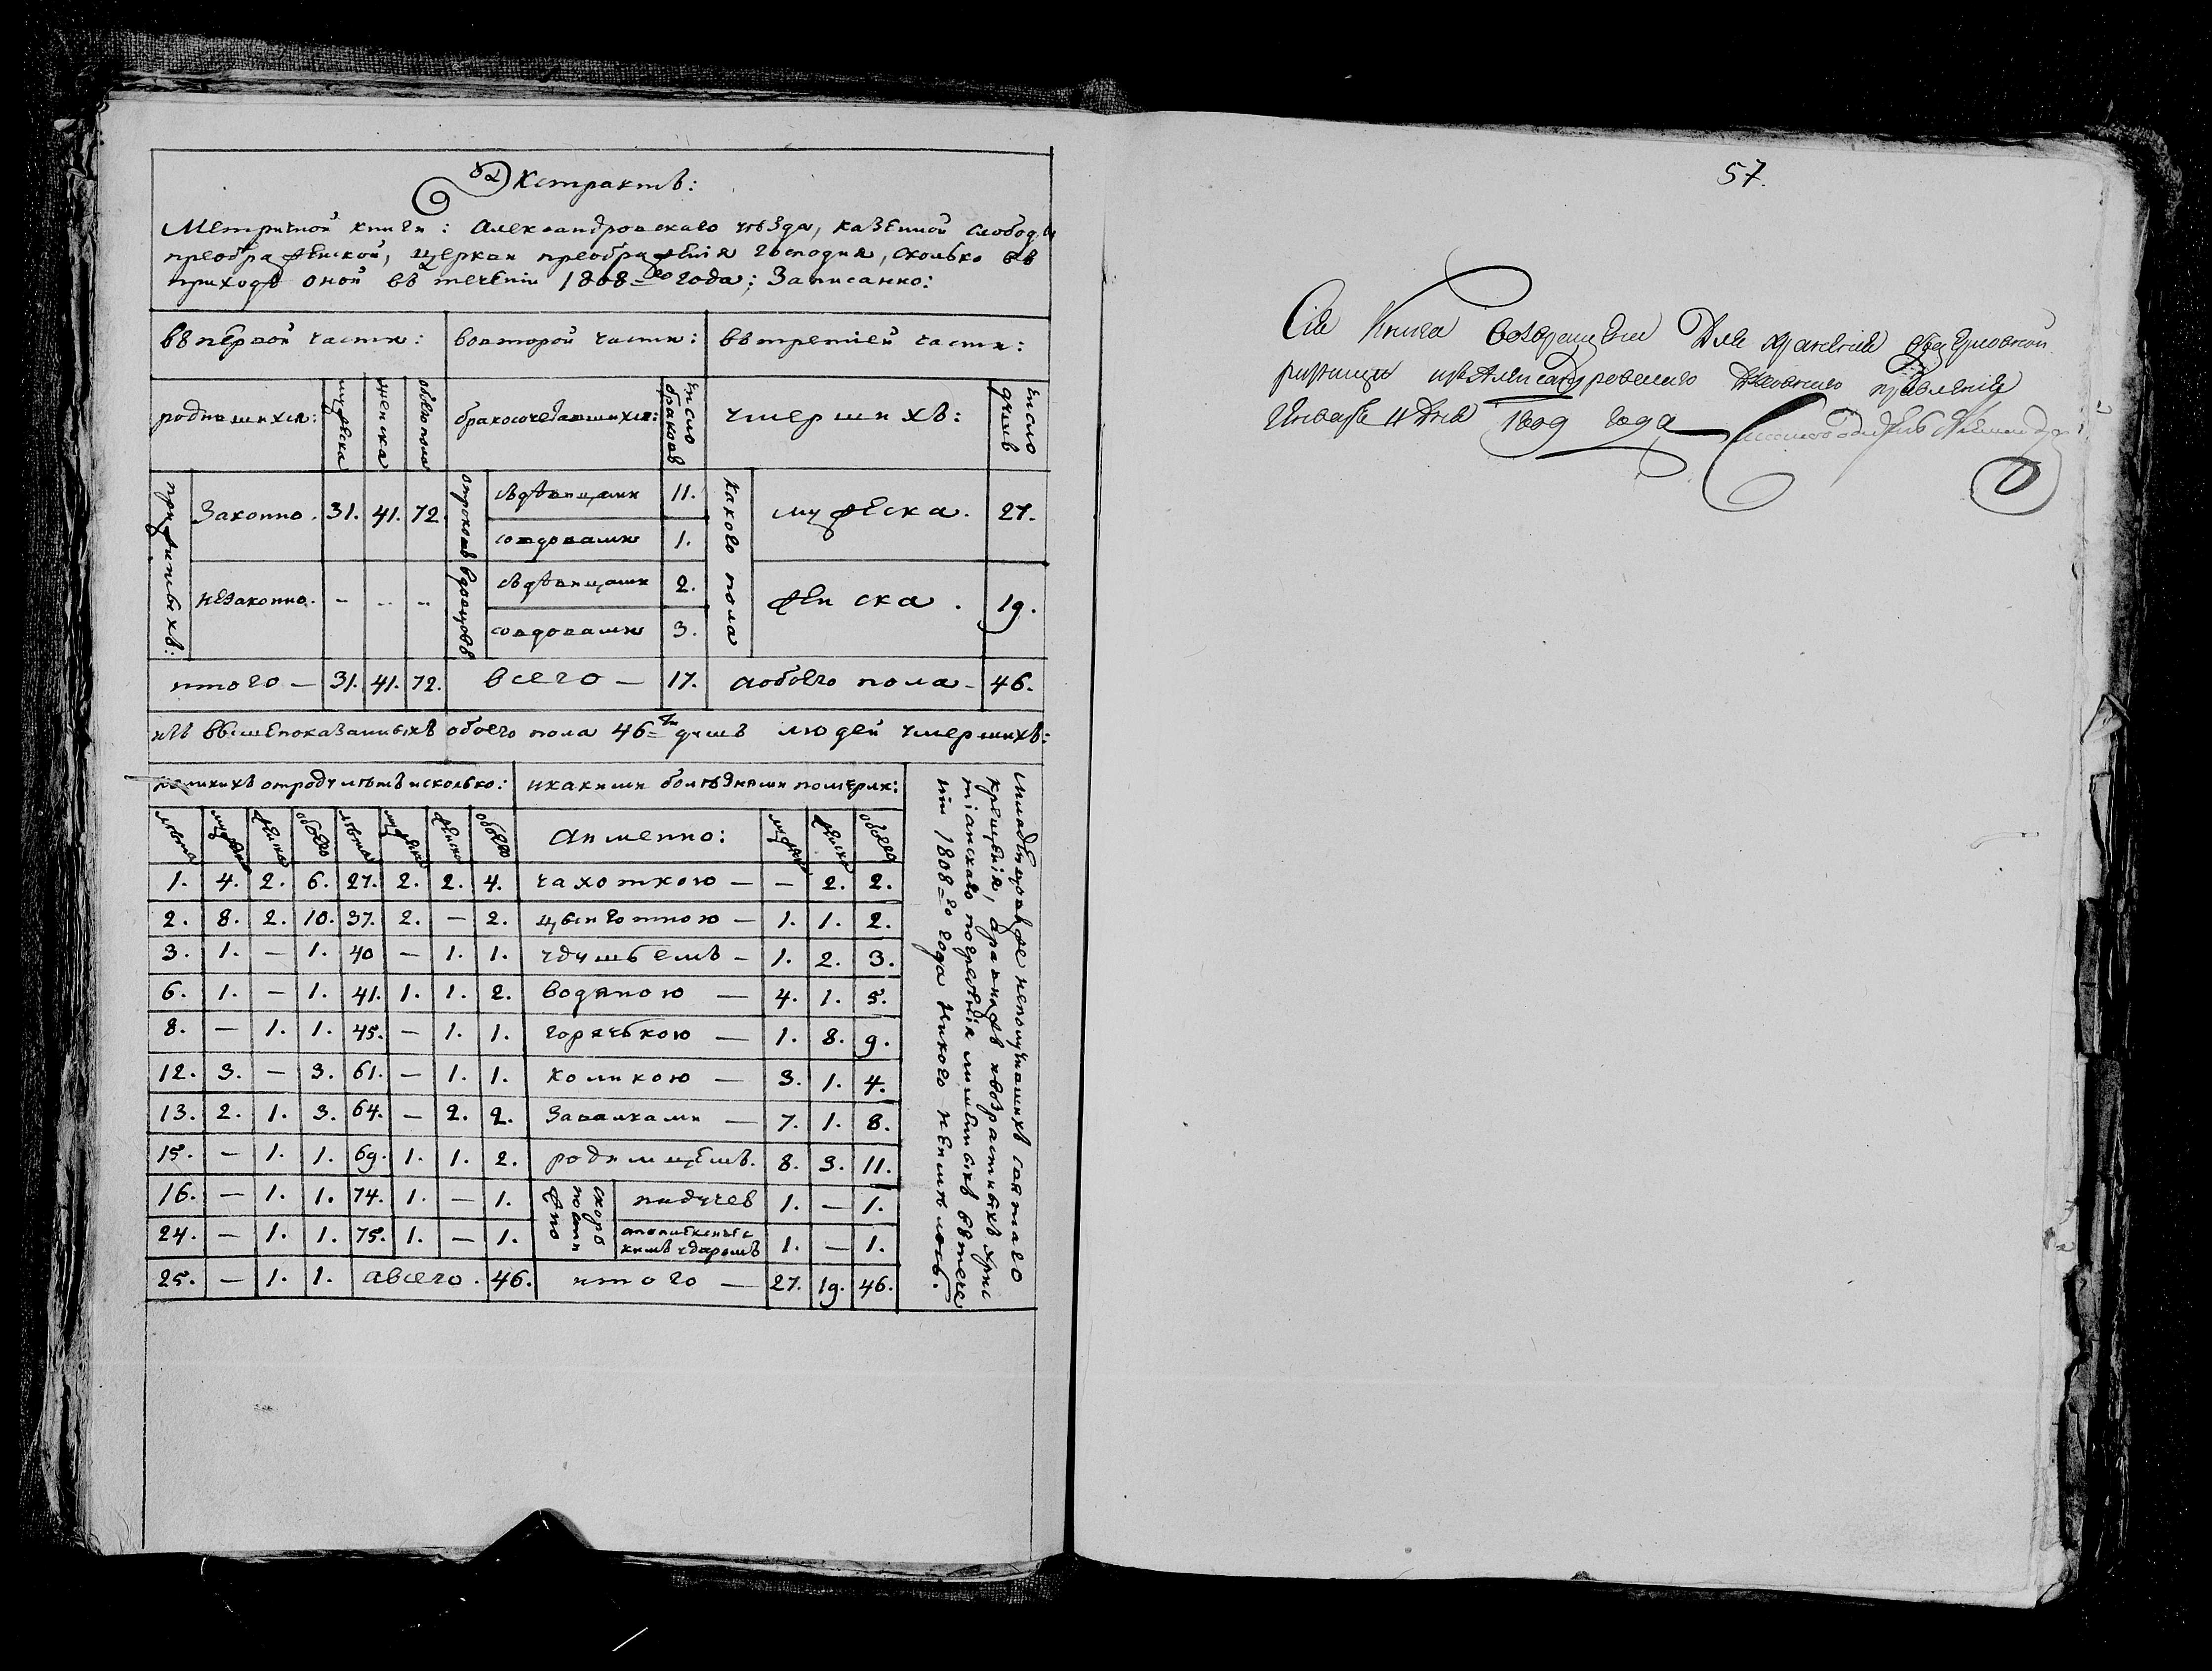 Экстрактъ:
Метричной книги: Александровскаго уѣзда, казенной слободы
преображенской, церкви преображенія господня, сколько въ
приходѣ оной въ теченіи 1808=го года; Записанно:
въ первой части: во второй части: въ третіей части:
родившихся: мужеска женска обоего пола бракосочетавшихся: число браковъ умершихъ: число душъ
прижитыхъ: Законно. 31. 41. 72. отроковъ съ дѣвицами 11. какого пола мужеска. 27.
со вдовами 1.
незаконно. - - - вдовцовъ съ дѣвицами 2. женска. 19.
со вдовами 3.
итого — 31. 41. 72. всего — 17. а обоего пола - 46.
изъ вышепоказанныхъ обоего пола 46=ти душъ людей умершихъ:
коликихъ отроду лѣтъ и сколько: и какими болѣзньми померли:
лѣта мужска женска обоего лѣта мужска женска обоего а именно: мужска женска обоего
1. 4. 2. 6. 27. 2. 2. 4. чахоткою — — 2. 2.
2. 8. 2. 10. 37. 2. — 2. цынготною — 1. 1. 2.
3. 1. — 1. 40 — 1. 1. удушьемъ — 1. 2. 3.
6. 1. — 1. 41. 1. 1. 2. водяною — 4. 1. 5.
8. — 1. 1. 45. — 1. 1. горячькою — 1. 8. 9.
12. 3. — 3. 61. — 1. 1. коликою — 3. 1. 4.
13. 2. 1. 3. 64. — 2. 2. Завалками — 7. 1. 8.
15. — 1. 1. 69. 1. 1. 2. родимцемъ. 8. 3. 11.
16. — 1. 1. 74. 1. — 1. скоро постижно падучев 1. — 1.
24. — 1. 1. 75. 1. — 1. апоплексичес
кимъ ударомъ 1. — 1.
25. — 1. 1. а всего. 46. итого — 27. 19. 46.
младенцовъ же неполучившихъ святаго
крещенія, а равно и возрастныхъ хрис
тіанскаго погребенія лишенныхъ въ тече
ніи 1808=го года никого неимѣлось.
57.
Сія Книга возвращена Для храненія въ церковной
ризницѣ изъ Александровскаго Духовнаго правленія
Генваря 4 Дня 1809 года